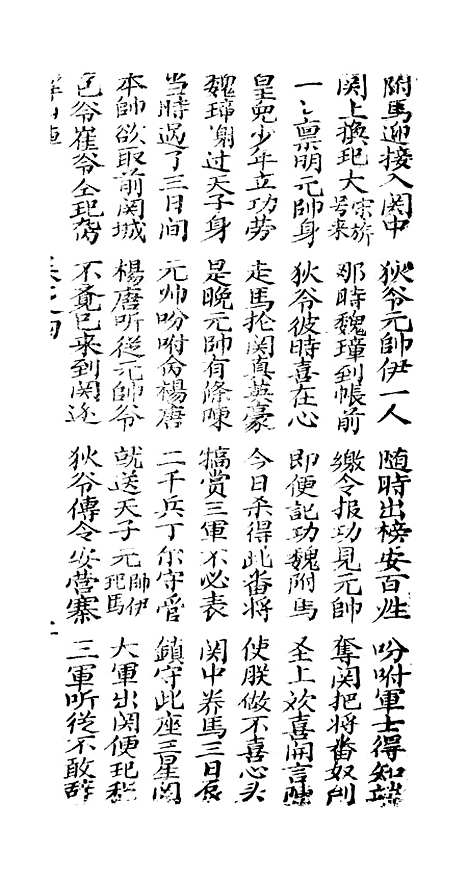 附馬迎接入関中 狄爷元帥伊一人 随時出榜安百姓 吩咐軍士得知端
関上換玘大宋旂号来 那時魏璋到帳前 繳令报功見元帥 奪関把將番奴刣
一〻禀明元帥身 狄爷彼時喜在心 即便記功魏附馬 圣上欢喜開言陳
皇兄少年立功劳 走馬抡関真英豪 今日杀得此番将 使朕做不喜心头
魏璋謝过天子身 是晚元帥有條陳 犒赏三軍不必表 関中养馬三日辰
当時過了三日間 元帅吩咐芮楊唐 二千兵丁尔守管 鎮守此座三星関
本帥欲取前関城 楊唐听從元帥爷 就送天子元帥伊玘馬 大軍出関便玘程
包爷崔爷仝玘驾 不覚已来到関边 狄爷傳令安营寨 三軍听從不敢辞